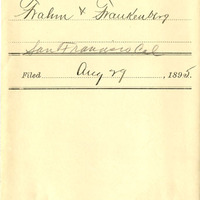 Frahm & Frankenberg
San Francisco Cal
Filed Aug 29, 1895.